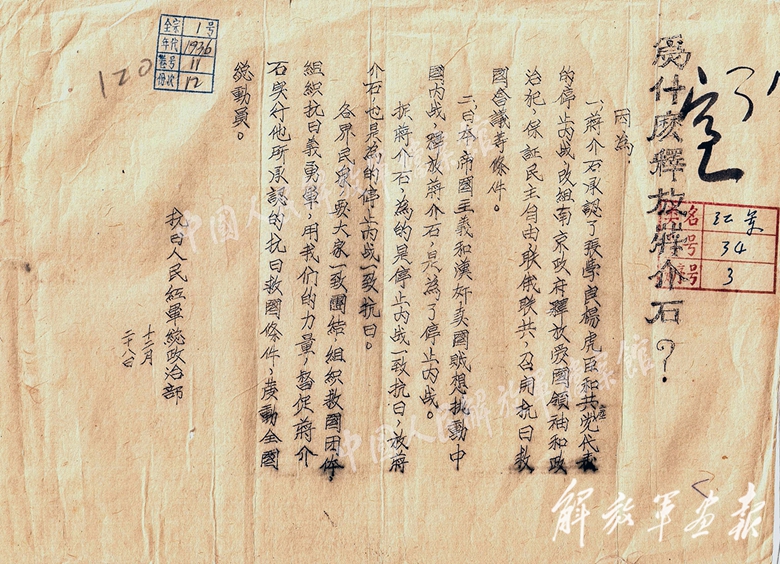 為什麽釋放蔣介石？
因為：
一、蔣介石承認了張學良楊虎臣和共產党代表
的停止内战改組南京政府釋放爱國領袖和政
治犯，保証民主自由，联俄联共，召開抗日救
國会議等條件。
二、日本帝國主義和漢奸卖國贼想挑動中
國内战，釋放蔣介石，是為了停止内战。
捉蔣介石為的是停止内战一致抗日，放蔣
介石，也是為的停止内战一致抗日。
各界民衆，要大家一致團結，組織救國团体，
組織抗日義勇軍，用我们的力量，督促蔣介
石实行他所承認的抗日救國條件，發動全國
總動員。
抗日人民紅軍總政治部
十二月
二十八日
全宗 1号
年代 1936
卷号 11
份次 12
120
名 江案
号 34
号 3
中国人民解放军档案馆
中国人民解放军档案馆
解放军画报